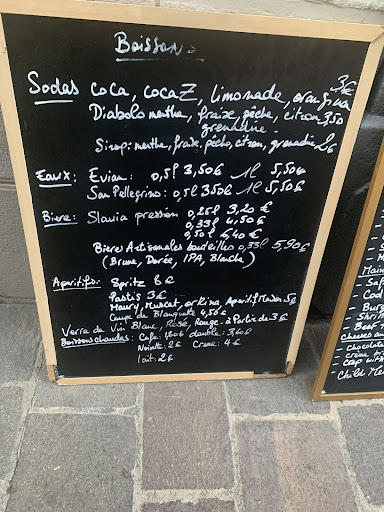 Boissons
Sodas coca, coca Z, limonade, orangina 3€
Diabolo menthe, fraise, pêche, citron 3,50
grenadine
Sirop: menthe, fraise, pêche, citron, grenadine 2€
Eaux: Evian: 0,5l 3,50€ 1l 5,50€
San Pellegrino: 0,5l 3,50€ 1l 5,50€
Biere: Slavia pression 0,25l 3,20€
0,33l 4,50€
0,50l 6,40€
Bieres Artisanales bouteilles 0,33l 5,90€
(Brune, Dorée, IPA, Blanche)
Aperitifs: Spritz 6€
Pastis 3€
Maury, Muscat, Aperitif Maison 5€
Coupe de Blanquette 4,50€
Verre de Vin: Blanc, Rosé, Rouge à Partir de 3€
Boissons chaudes: Cafe: 1,80€ double: 3,60€
Noisette: 2€ Creme: 4€
Lait: 2€
Beef
- chocolate
- crème
Child Me